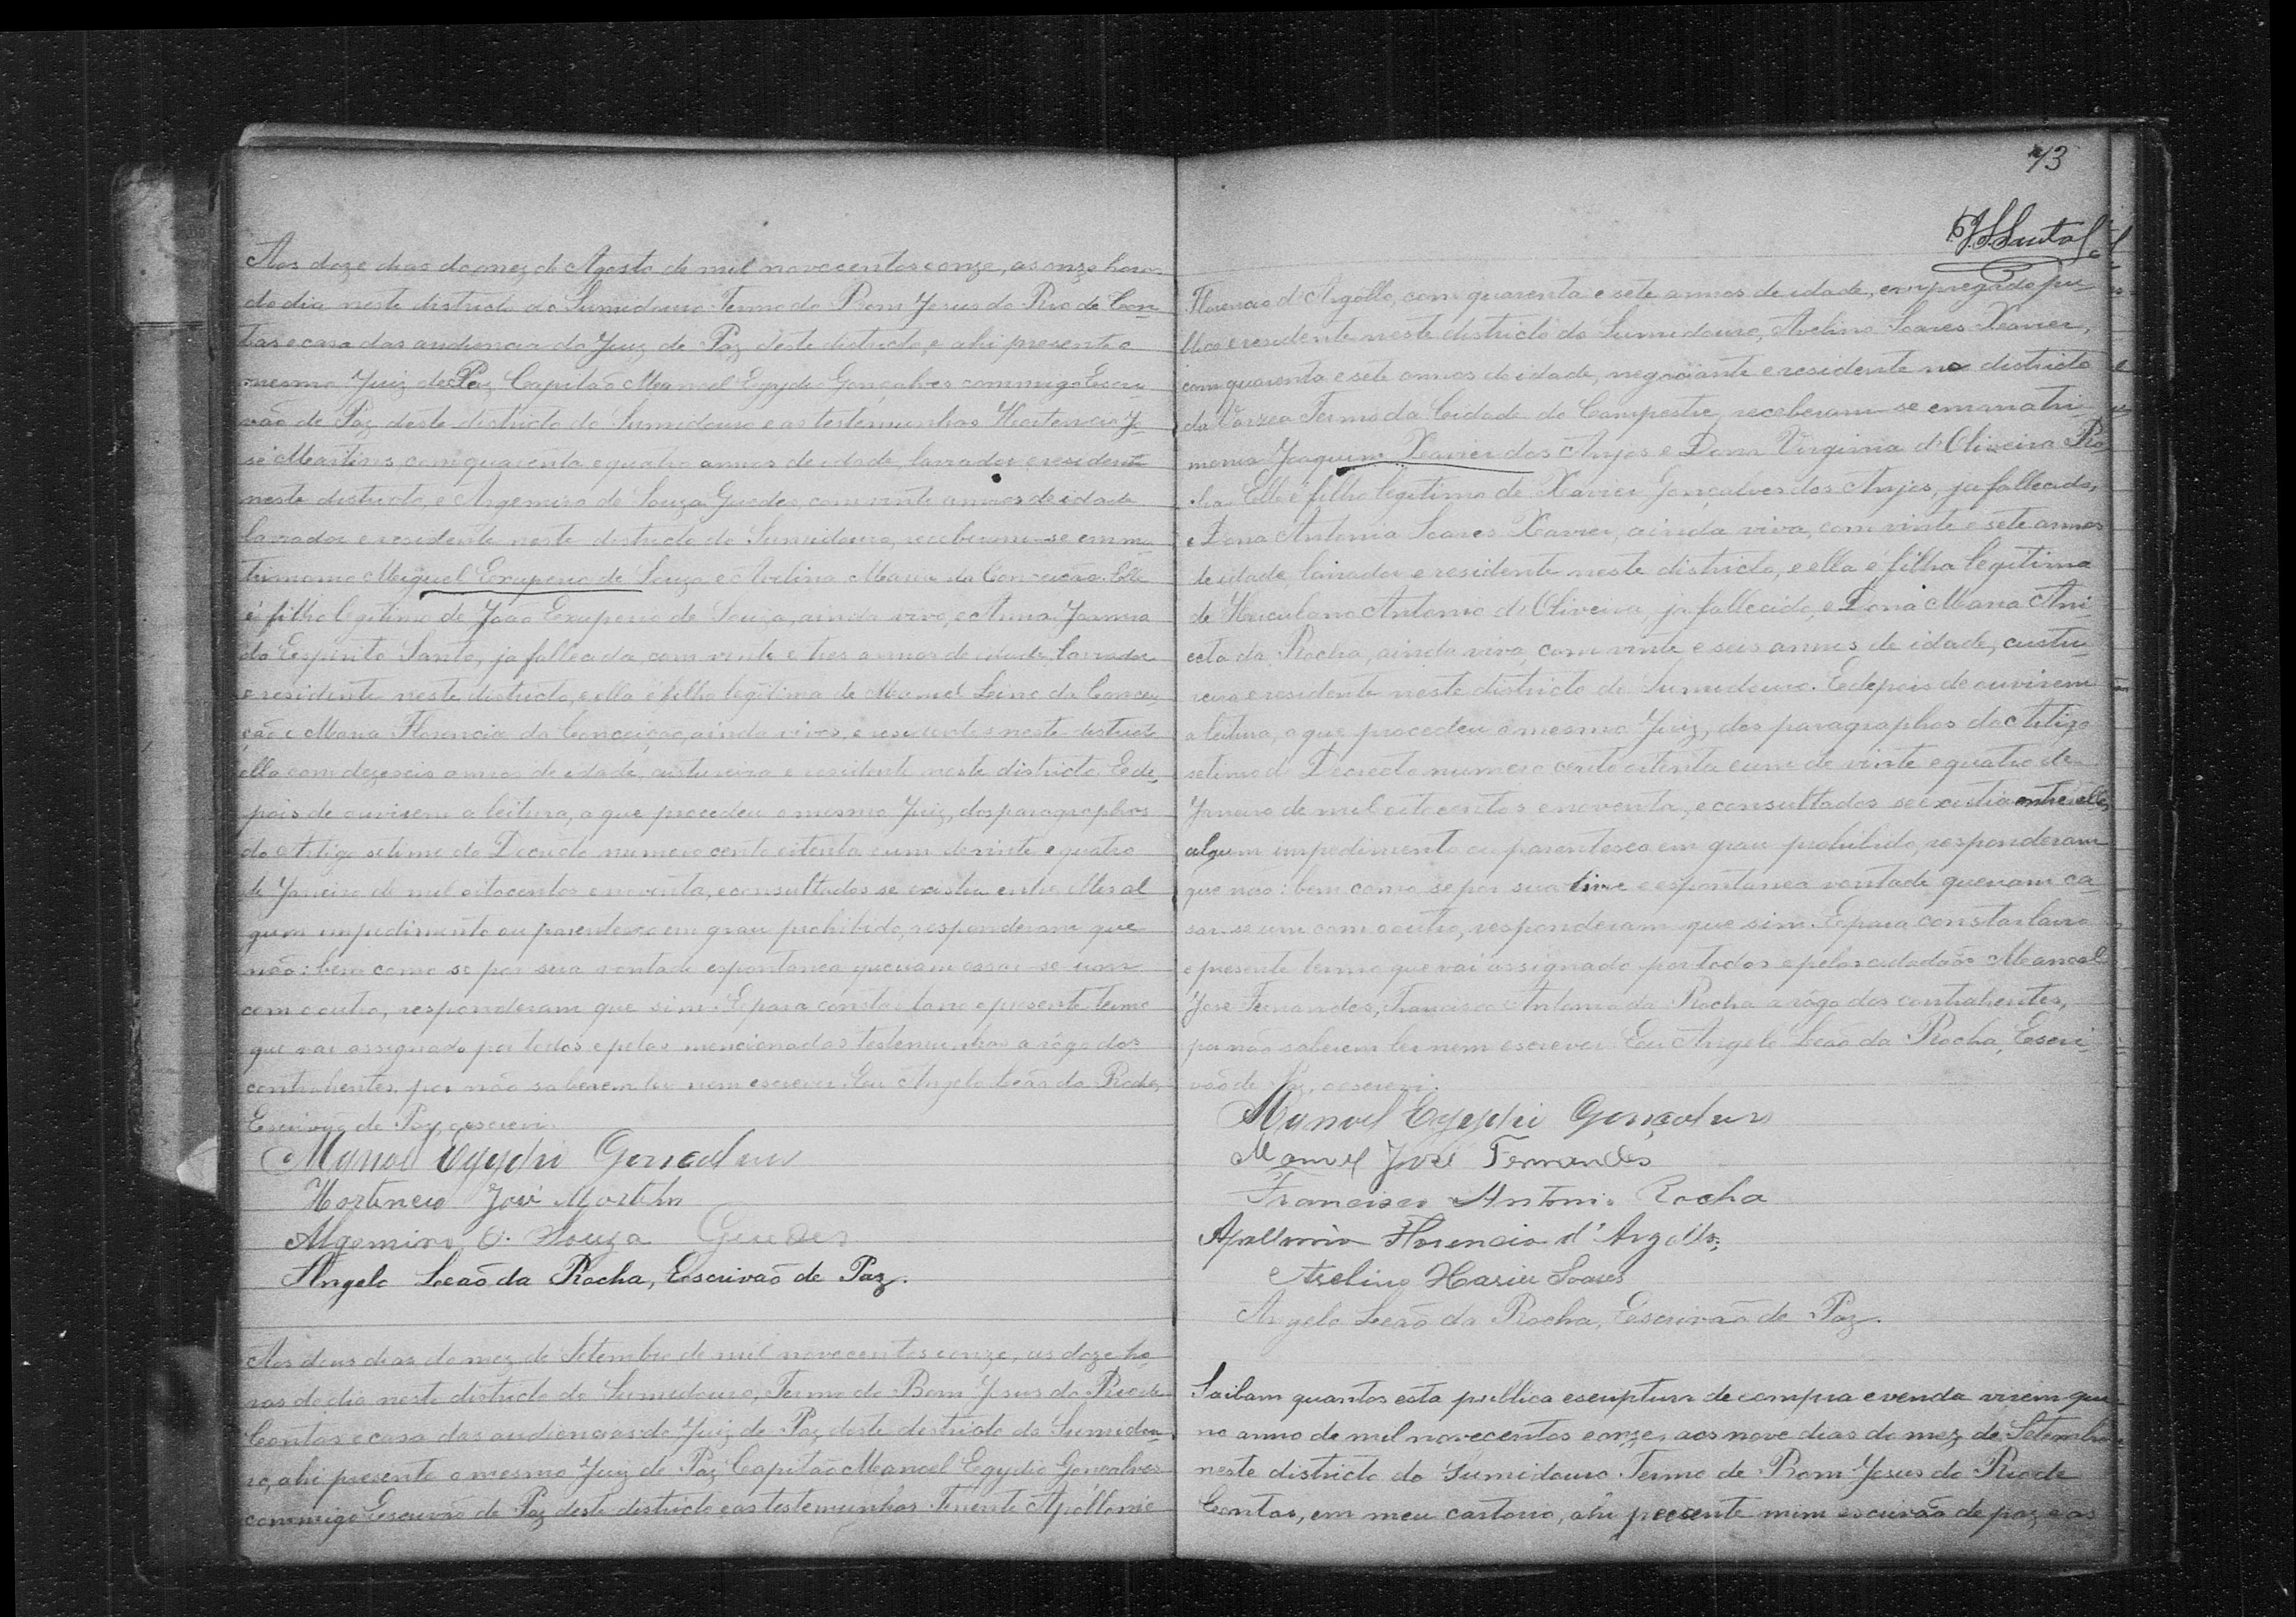 Aos doze dias do mez de Agosto de mil novecentos e onze, as onze horas
do dia neste districto do Sumidouro Termo do Bom Jesus do Rio de Con-
tas e casa das audiencias do Juiz de Paz deste districto, e ahi presente o
mesmo Juiz de Paz Capitão Manoel Egydio Gonçalves commigo Escri-
vão de Paz deste districto do Sumidouro e as testemunhas Hortencio Jo-
sé Martins, com quarenta e quatro annos de idade, lavrador e residente
neste districto, e Argemiro de Souza Guedes, com vinte annos de idade
lavrador e residente neste districto do Sumidouro, receberam-se em ma-
trimonio Miguel Exuperio de Souza e Avelina Maria da Conceição. Elle
é filho legitimo de João Exuperio de Souza, ainda vivo, e Anna Joanna
do Espirito Santo, ja fallecida, com vinte e tres annos de idade, lavrador
e residente neste districto, e ella é filha legitima de Manoel Lino da Concei-
ção e Maria Florencia da Conceição, ainda vivos, e residentes neste districto
ella com dezeseis annos de idade, custureira e residente neste districto. E de-
pois de ouvirem a leitura, a que procedeu o mesmo Juiz, dos paragraphos
do Artigo setimo do Decreto numero cento oitenta e um de vinte e quatro
de Janeiro de mil oitocentos e noventa, e consultados se existia entre elles al
gum impedimento ou parentesco em grau prohibido, responderam que
não: bem como se por sua vontade espontanea queriam casar-se um
com o outro, responderam que sim. E para constar lavro o presente termo
que vai assignado por todos e pelas mencionadas testemunhas a rógo dos
contrahentes, por não saberem ler nem escrever. Eu Angelo Leão da Rocha,
Escrivão de Paz, o escrevi.
Manoel Egydio Gonçalves
Hortencio José Martins
Algemiro d. Souza Guedes
Angelo Leão da Rocha, Escrivão de Paz.
Aos dous dias do mez de Setembro de mil novecentos e onze, as doze ho-
ras do dia neste districto do Sumidouro, Termo do Bom Jesus do Rio de
Contas e casa das audiencias do Juiz de Paz deste districto do Sumidou-
ro, ahi presente o mesmo Juiz de Paz Capitão Manoel Egydio Gonçalves
commigo Escrivão de Paz deste districto e as testemunhas Tenente Apollonio
73
Florencio d'Argollo, com quarenta e sete annos de idade, empregado pu-
blico e residente neste districto do Sumidouro, Avelino Soares Xavier,
com quarenta e sete annos de idade, negociante e residente no districto
da Varzea Termo da Cidade do Campestre, receberam-se em matri-
monio Joaquim Xavier dos Anjos e Dona Virginia d'Oliveira Ro
cha. Elle é filho legitimo de Xavier Gonçalves dos Anjos, ja fallecido,
e Dona Antonia Soares Xavier, ainda viva, com vinte e sete annos
de idade, lavrador e residente neste districto, e ella é filha legitima
de Herculano Antonio d'Oliveira, ja fallecido, e Dona Maria Ani
ceta da Rocha, ainda viva, com vinte e seis annos de idade, custu-
reira e residente neste districto do Sumidouro. E depois de ouvirem
a leitura, a que procedeu o mesmo Juiz, dos paragraphos do Artigo
setimo do Decreto numero cento oitenta e um de vinte e quatro de
Janeiro de mil oitocentos e noventa, e consultados se existia entre elles
algum impedimento ou parentesco em grau prohibido, responderam
que não: bem como se por sua livre e espontanea vontade queriam ca-
sar-se um com o outro, responderam que sim. E para constar lavro
o presente termo que vai assignado por todos e pelos cidadãos Manoel
José Fernandes, Francisco Antonio da Rocha a rógo dos contrahentes,
por não saberem ler nem escrever. Eu Angelo Leão da Rocha, Escri-
vão de Paz, o escrevi.
Manoel Egydio Gonçalves
Manoel José Fernandes
Francisco Antonio Rocha
Apollonio Florencio d'Argollo
Avelino Xavier Soares
Angelo Leão da Rocha, Escrivão de Paz.
Saibam quantos esta publica escriptura de compra e venda virem que
no anno de mil novecentos e onze, aos nove dias do mez de Setembro
neste districto do Sumidouro Termo de Bom Jesus do Rio de
Contas, em meu cartorio, ahi presente mim escrivão de paz, e as